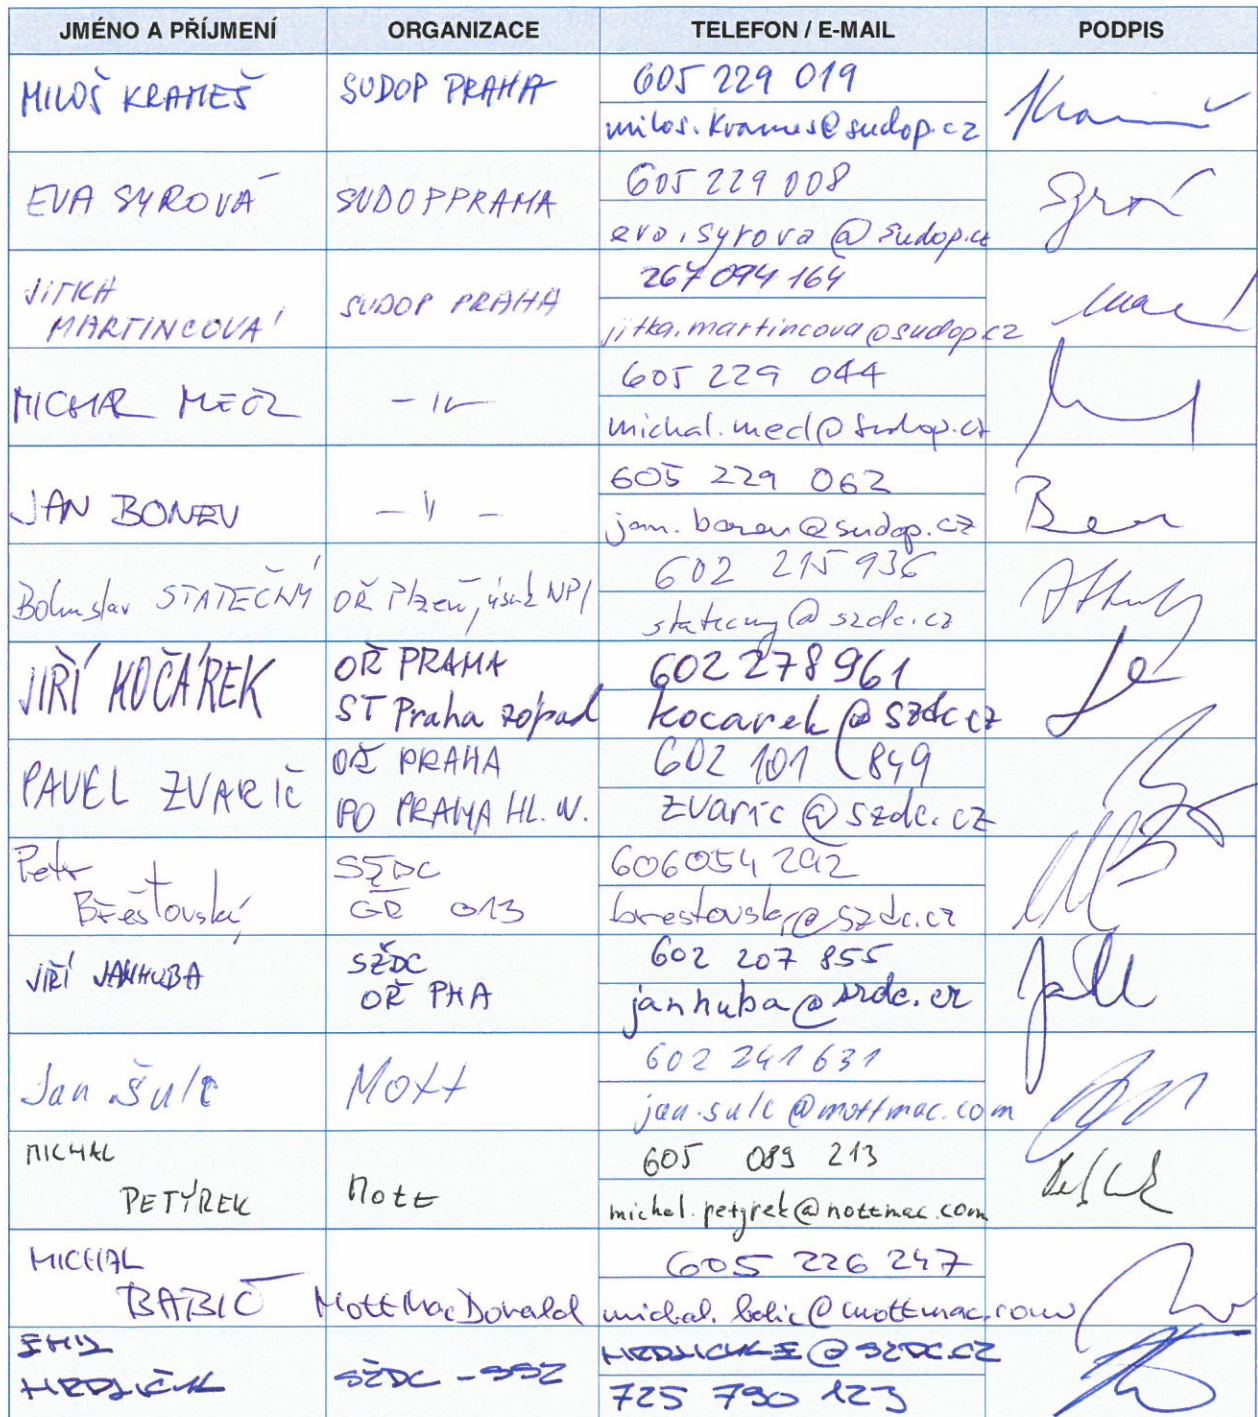 JMÉNO A PŘÍJMENÍ ORGANIZACE TELEFON / E-MAIL PODPIS
MILOŠ KRAMEŠ SUDOP PRAHA 605 229 019
milos.krames@sudop.cz
EVA SYROVÁ SUDOP PRAHA 605 229 008
eva.syrova@sudop.cz
JITKA
MARTINCOVÁ SUDOP PRAHA 267 094 164
jitka.martincova@sudop.cz
MICHAL 605 229 044
michal.mecl@sudop.cz
JAN BONEV 605 229 062
jan.bonev@sudop.cz
Bohuslav STATEČNÝ OŘ Plzeň, 602 215 936
statecny@szdc.cz
JIŘÍ KOČÁREK OŘ PRAHA 602 278 961
ST Praha západ kocarek@szdc.cz
PAVEL ZVARIČ OŘ PRAHA 602 101 849
PO PRAHA HL. N. zvaric@szdc.cz
Petr
Břešťovský SŽDC 606054 292
GŘ 013 brestovsky@szdc.cz
JIŘÍ JANHUBA SŽDC 602 207 855
OŘ PHA janhuba@szdc.cz
Jan Šulc Mott 602 241 631
jan.sulc@mottmac.com
MICHAL
PETÝREK Mott 605 089 213
michal.petyrek@mottmac.com
MICHAL
BABIČ Mott MacDonald 605 226 247
michal.babic@mottmac.com
HRDLIČKA SŽDC - SSZ HRDLICKAE@SZDC.CZ
725 790 123